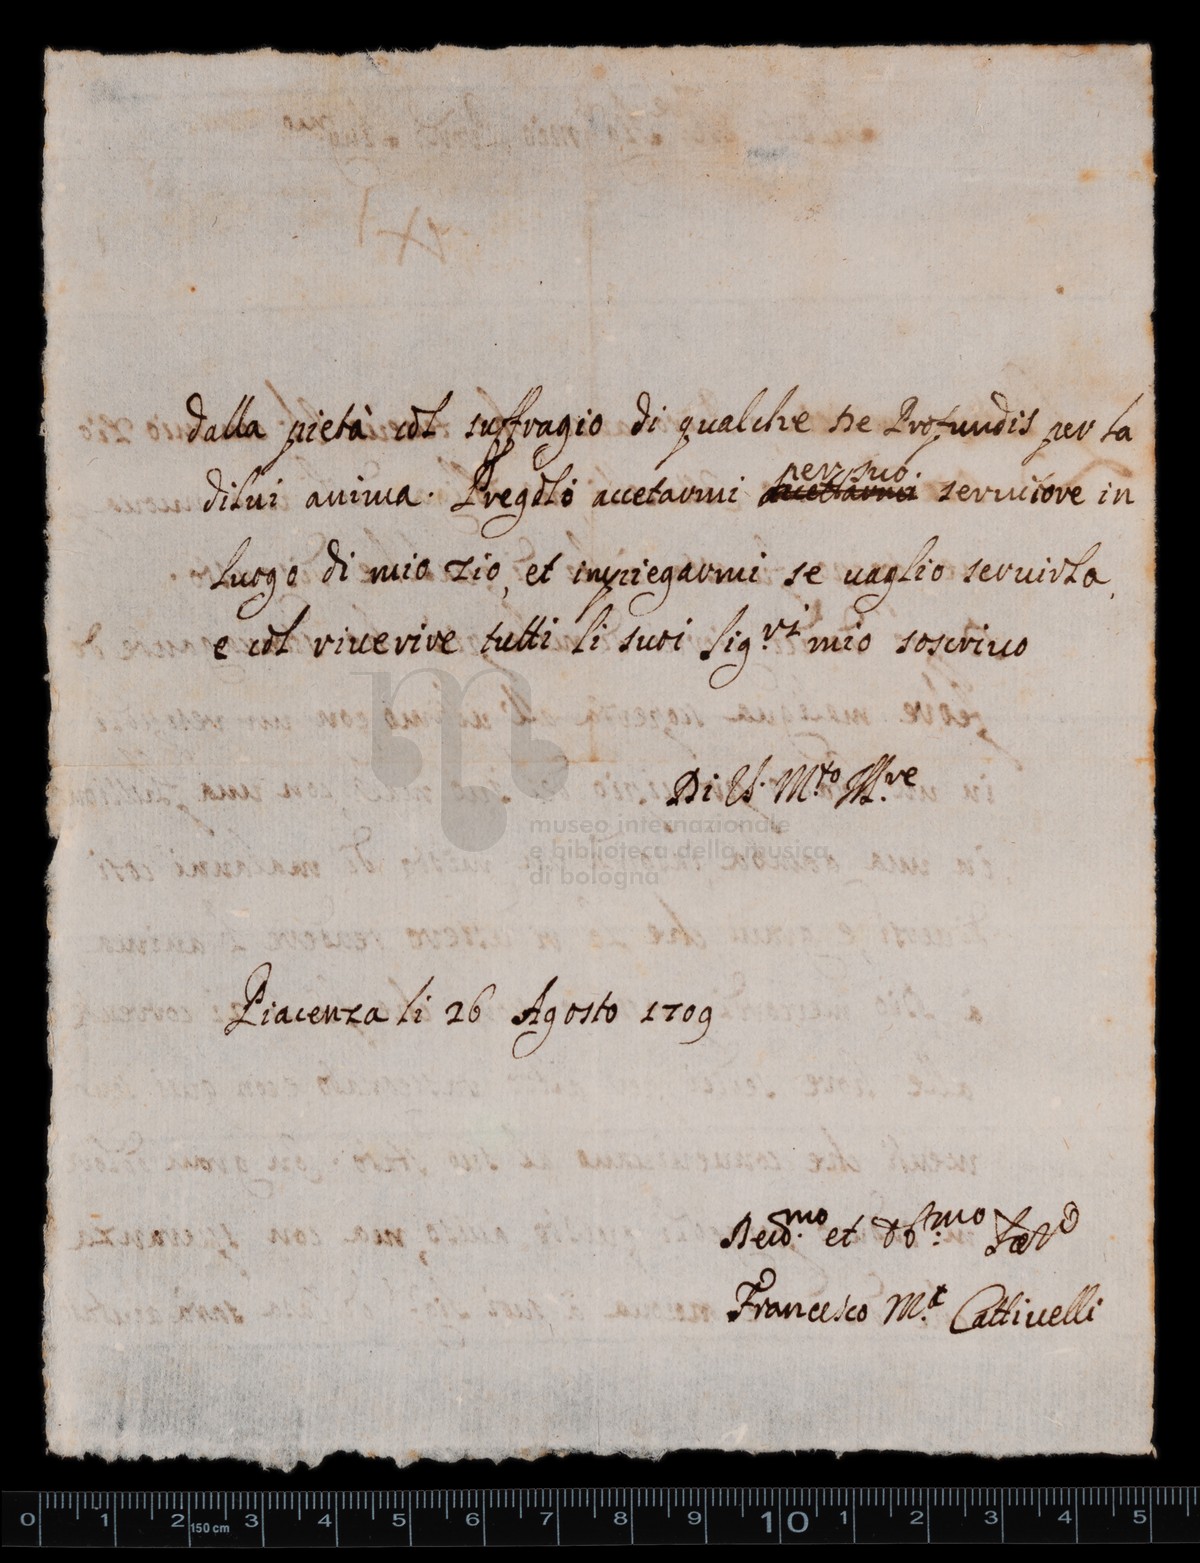 dalla pietà col suffragio di qualche De Profundis per la
per suo
dilui anima. Pregolo accetarmi accettarmi seruitore in
luogo di mio zio, et inpiegarmi se uaglio seruirla,
e col riuerire tutti li suoi Sig.ri mio soscriuo
Di V.S. M.to Ill.re
museo internazionale
e biblioteca della musica
di bologna
Piacenza li 26 Agosto 1709
Deuo.mo et Ob.mo
Francesco M.a Cattiuelli
0 1 2 150 cm 3 4 5 6 7 8 9 10 1 2 3 4 5